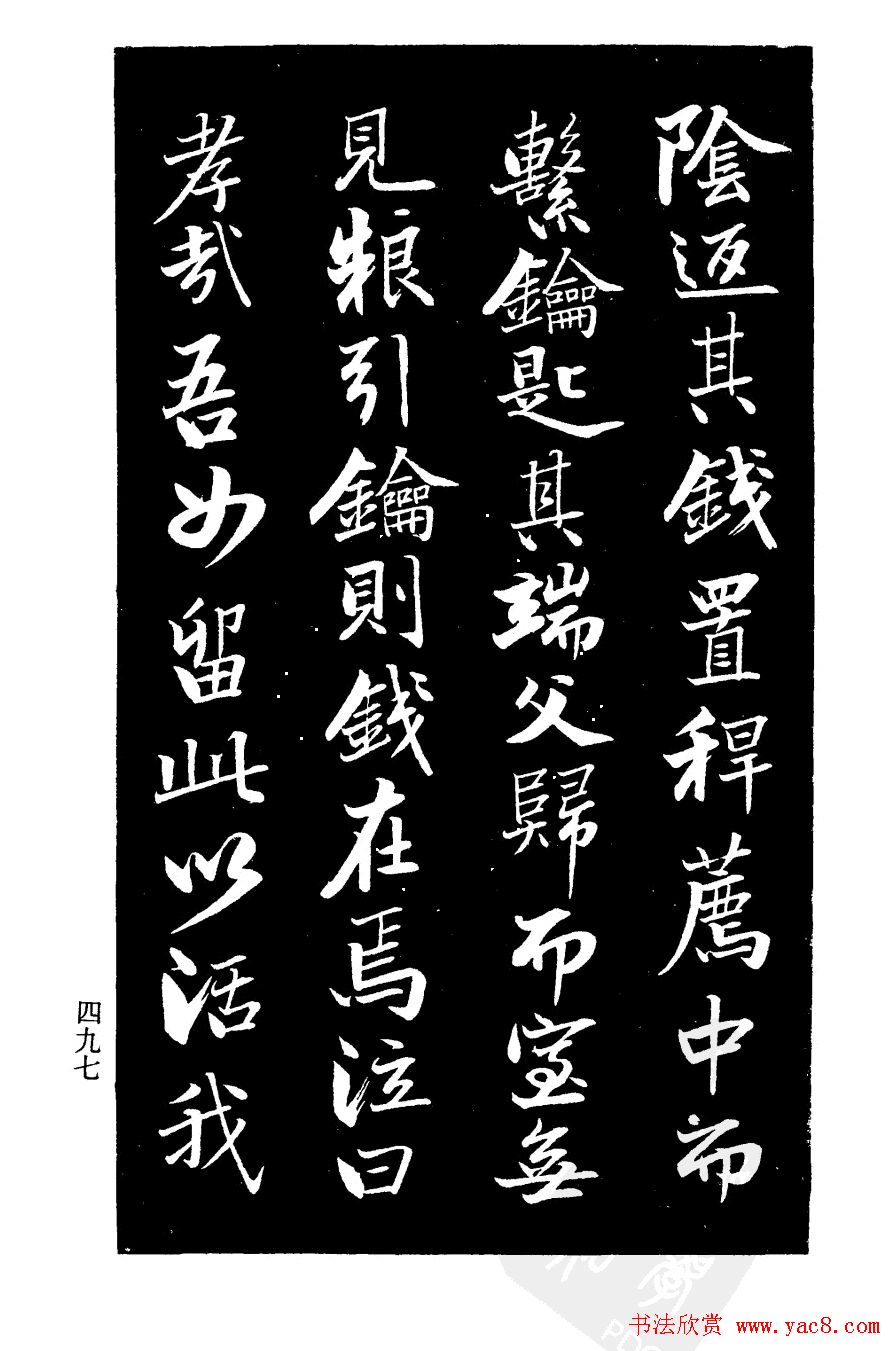 陰返其錢置稈薦中而
繫鑰匙其端父歸而室無
見粮引鑰則錢在焉泣曰
孝哉吾女留此以活我
四九七
书法欣赏 www.yac8.com